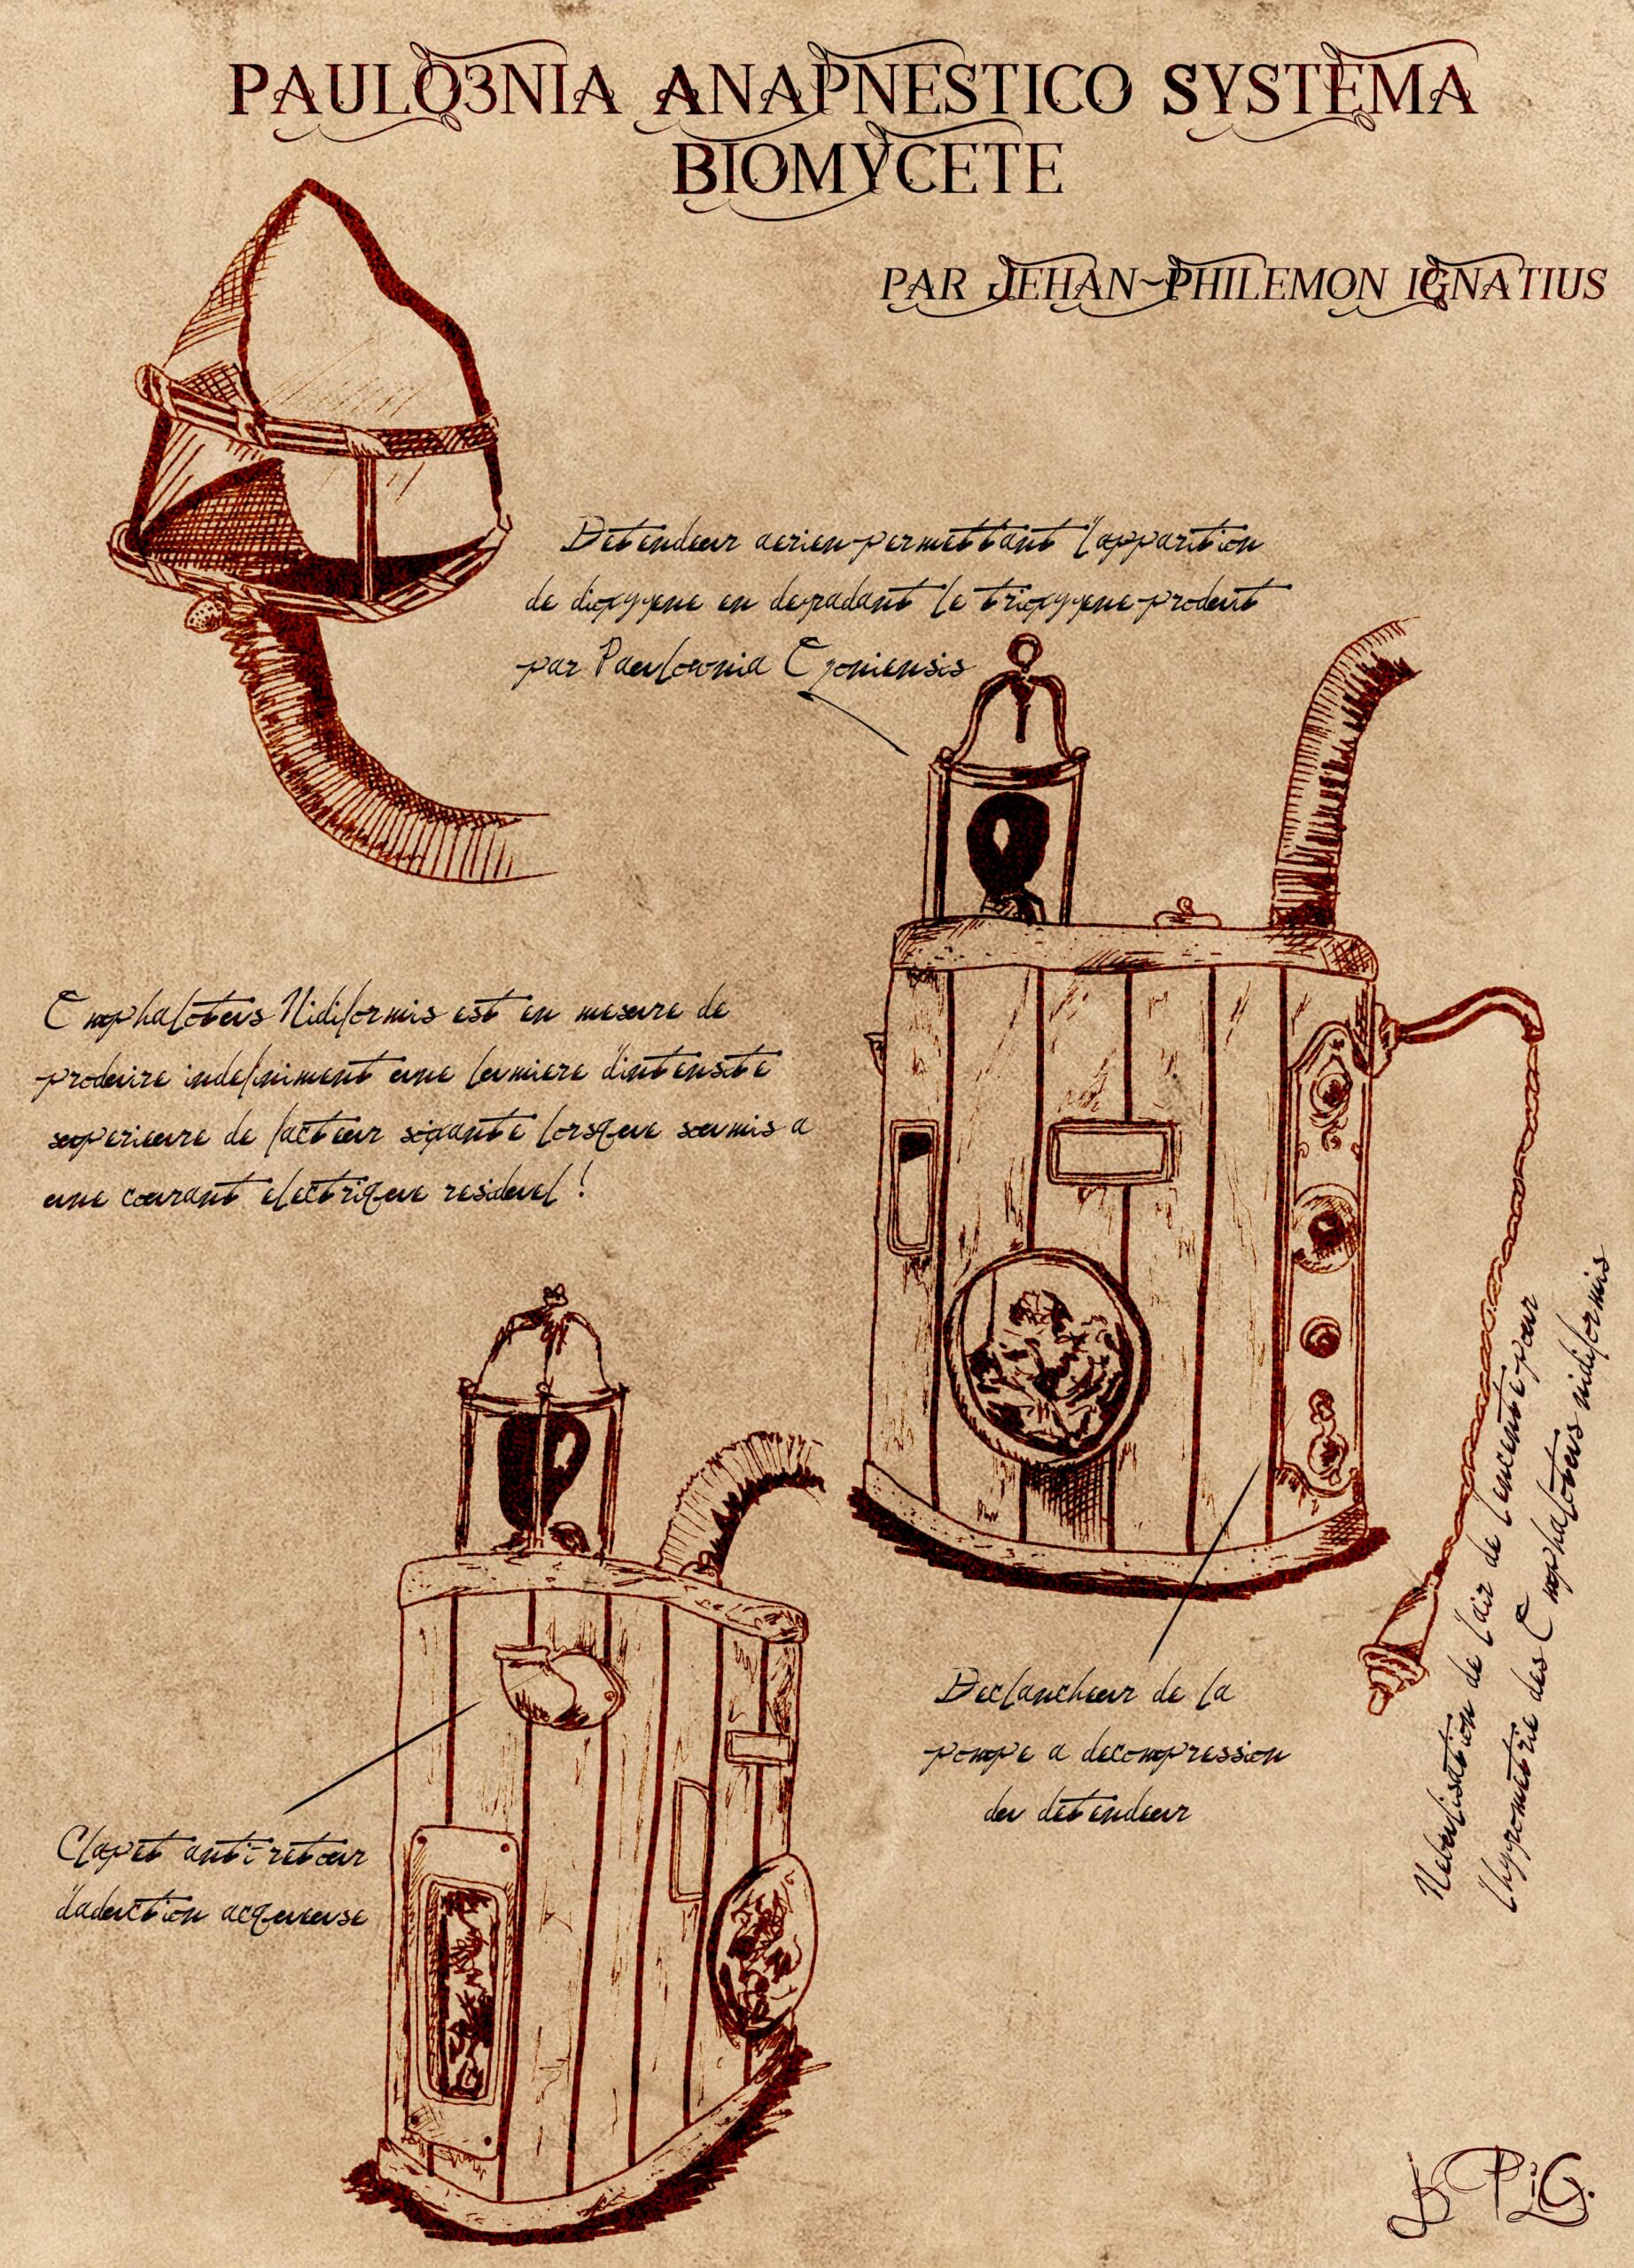 PAULO3NIA ANAPNESTICO SYSTEMA
BIOMYCETE
PAR JEHAN~PHILEMON IGNATIUS
Detendeur aerien permettant l'apparition
de dioxygene en degradant le trioxygene produit
par Paulownia Ozoniensis
Omphalotus Nidiformis est en mesure de
produire indefiniment une lumiere d'intensite
superieure de facteur sigante lorsque soumis a
une courant electrique residuel !
Nebulisation de l'air de l'enceinte pour
l'hygrometrie des Omphalotus nidiformis
Declancheur de la
pompe a decompression
du detendeur
Clapet anti-retour
d'aduction acqueuse
J PiG.